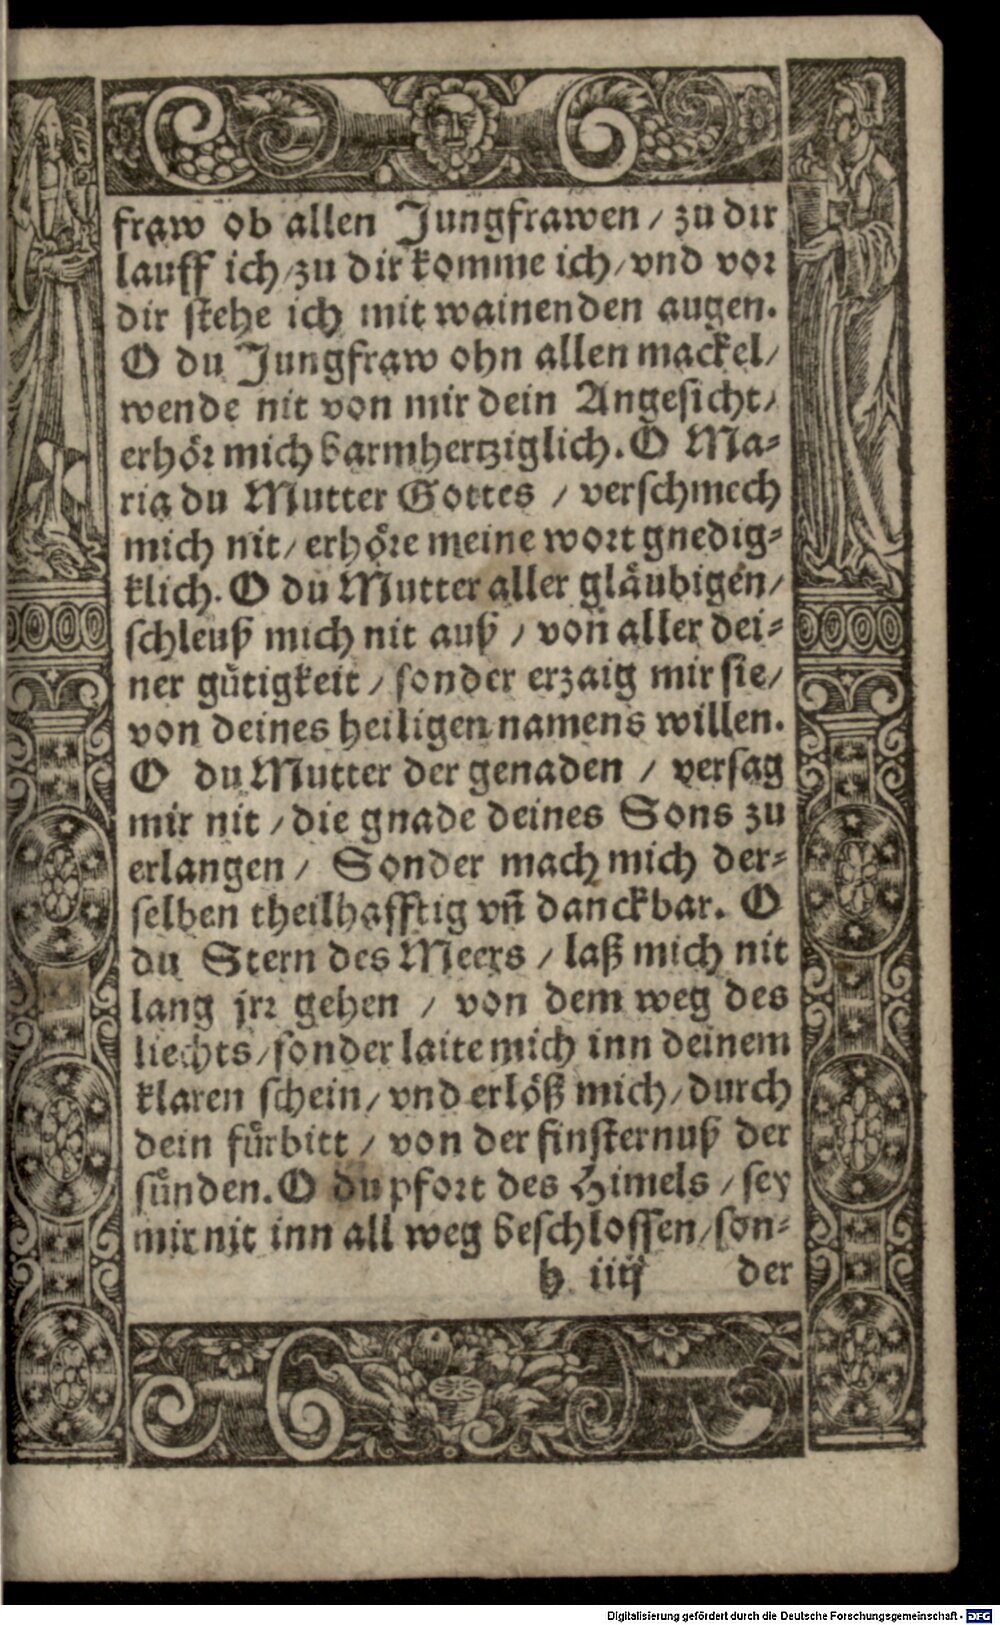 fraw ob allen Jungfrawen / zu dir
lauff ich / zu dir komme ich / vnd vor
dir stehe ich mit wainenden augen.
O du Jungfraw ohn allen mackel /
wende nit von mir dein Angesicht /
erhör mich barmhertziglich. O Ma-
ria du Mutter Gottes / verschmech
mich nit / erhöre meine wort gnedig-
klich. O du Mutter aller gläubigen /
schleuß mich nit auß / von aller dei-
ner gütigkeit / sonder erzaig mir sie /
von deines heiligen namens willen.
O du Mutter der genaden / versag
mir nit / die gnade deines Sons zu
erlangen / Sonder mach mich der-
selben theilhafftig vñ danckbar. O
du Stern des Meers / laß mich nit
lang jrr gehen / von dem weg des
liechts / sonder laite mich inn deinem
klaren schein / vnd erlöß mich / durch
dein fürbitt / von der finsternuß der
sünden. O du pfort des Himels / sey
mir nit inn all weg beschlossen / son-
h iiij der
Digitalisierung gefördert durch die Deutsche Forschungsgemeinschaft - DFG